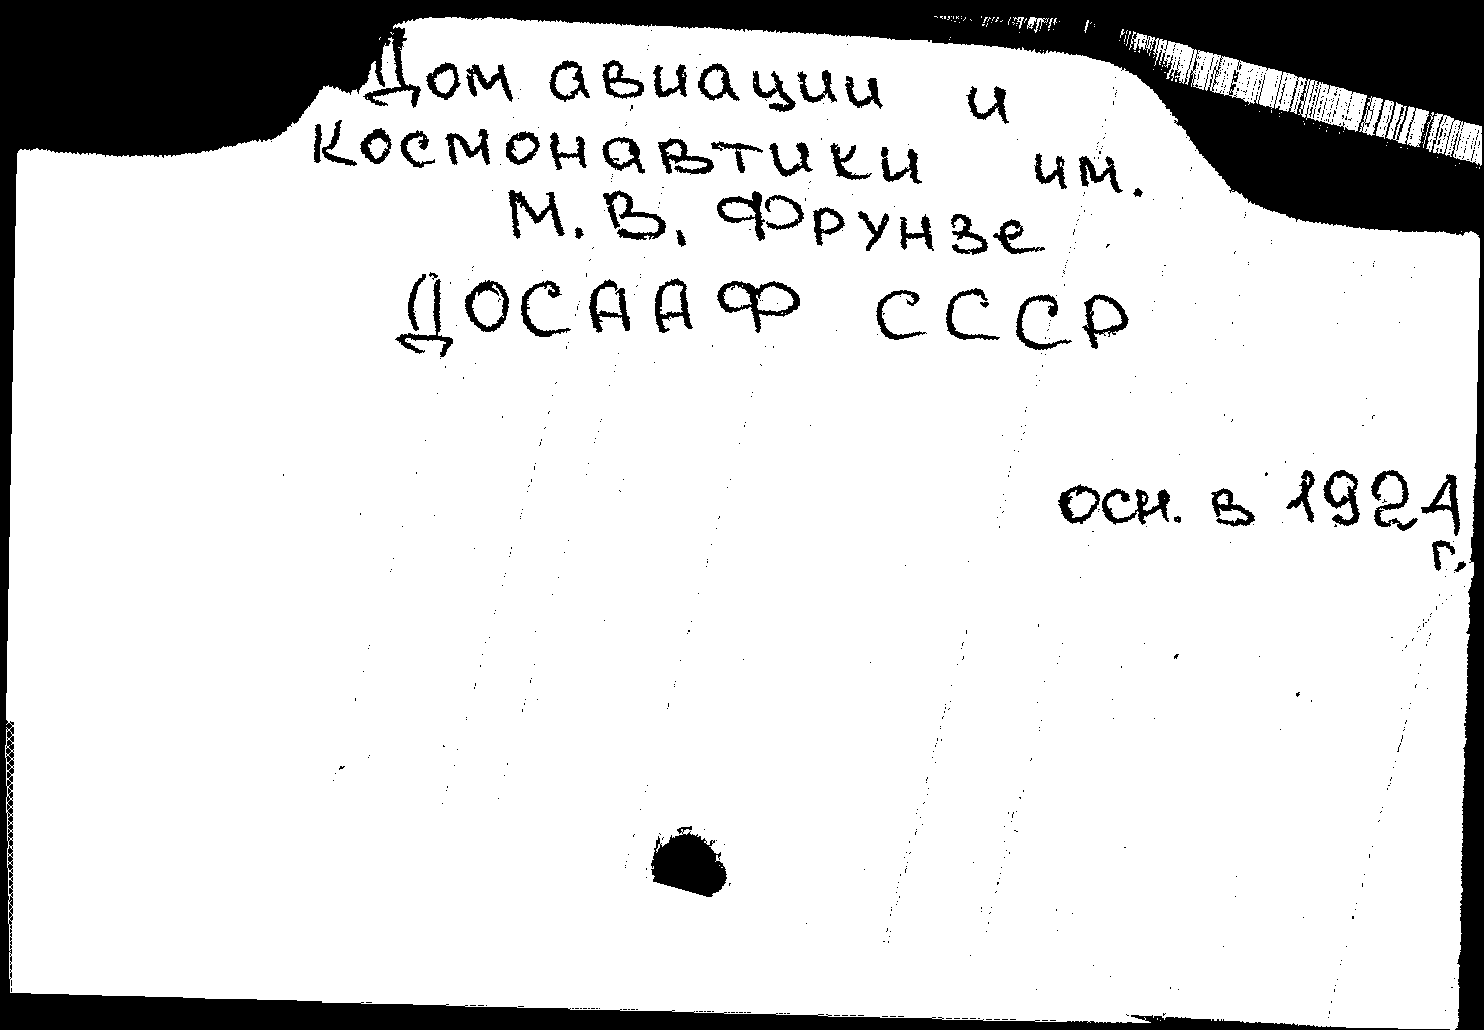 Дом авиации и
космонавтики им.
М. В. Фрунзе
ДОСААФ СССР
осн. в 1924
г.